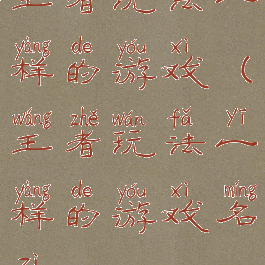 王者玩法一
yàng de yóu xì
样的游戏（
wáng zhě wán fǎ yī
王者玩法一
yàng de yóu xì míng
样的游戏名
zì